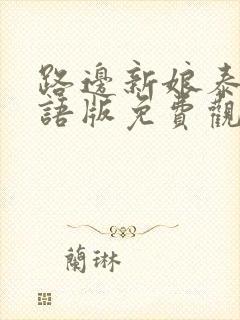 路邊新娘泰
語版免費觀
蘭琳